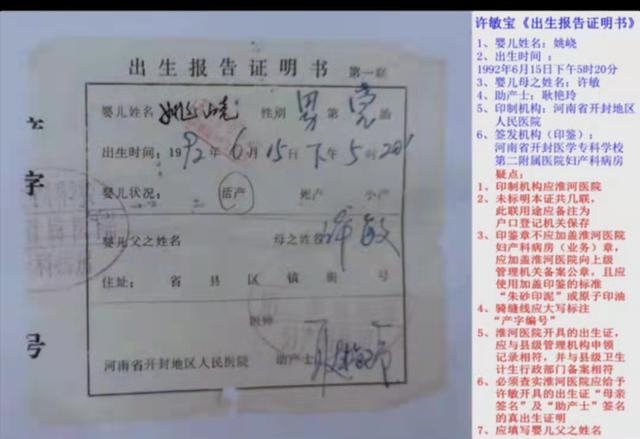 出生报告证明书 第一联
婴儿姓名 姚峣 性别 男 第 壹 胎
出生时间:1992年6月15日下午5时20分
婴儿状况: 活产 死产 小产
婴儿父之姓名 母之姓名 许敏
住址: 省 县 区 镇 街 号
医师
河南省开封地区人民医院 助产士
字
号
许敏宝《出生报告证明书》
1、婴儿姓名:姚峣
2、出生时间 :
1992年6月15日下午5时20分
3、婴儿母之姓名:许敏
4、助产士:耿艳玲
5、印制机构:河南省开封地区
人民医院
6、签发机构(印鉴):
河南省开封医学专科学校
第二附属医院妇产科病房
疑点:
1、印制机构应淮河医院
2、未标明本证共几联,
此联用途应备注为
户口登记机关保存
3、印鉴章不应加盖淮河医院
妇产科病房(业务)章,
应加盖淮河医院向上级
管理机关备案公章,且应
使用加盖印鉴的标准
“朱砂印泥”或原子印油
4、骑缝线应大写标注
“产字编号”
5、淮河医院开具的出生证,
应与县级管理机构申领
记录相符,并与县级卫生
计生行政部门备案相符
6、必须查实淮河医院应给予
许敏开具的出生证“母亲
签名”及“助产士”签名
的真出生证明
7、应填写婴儿父之姓名